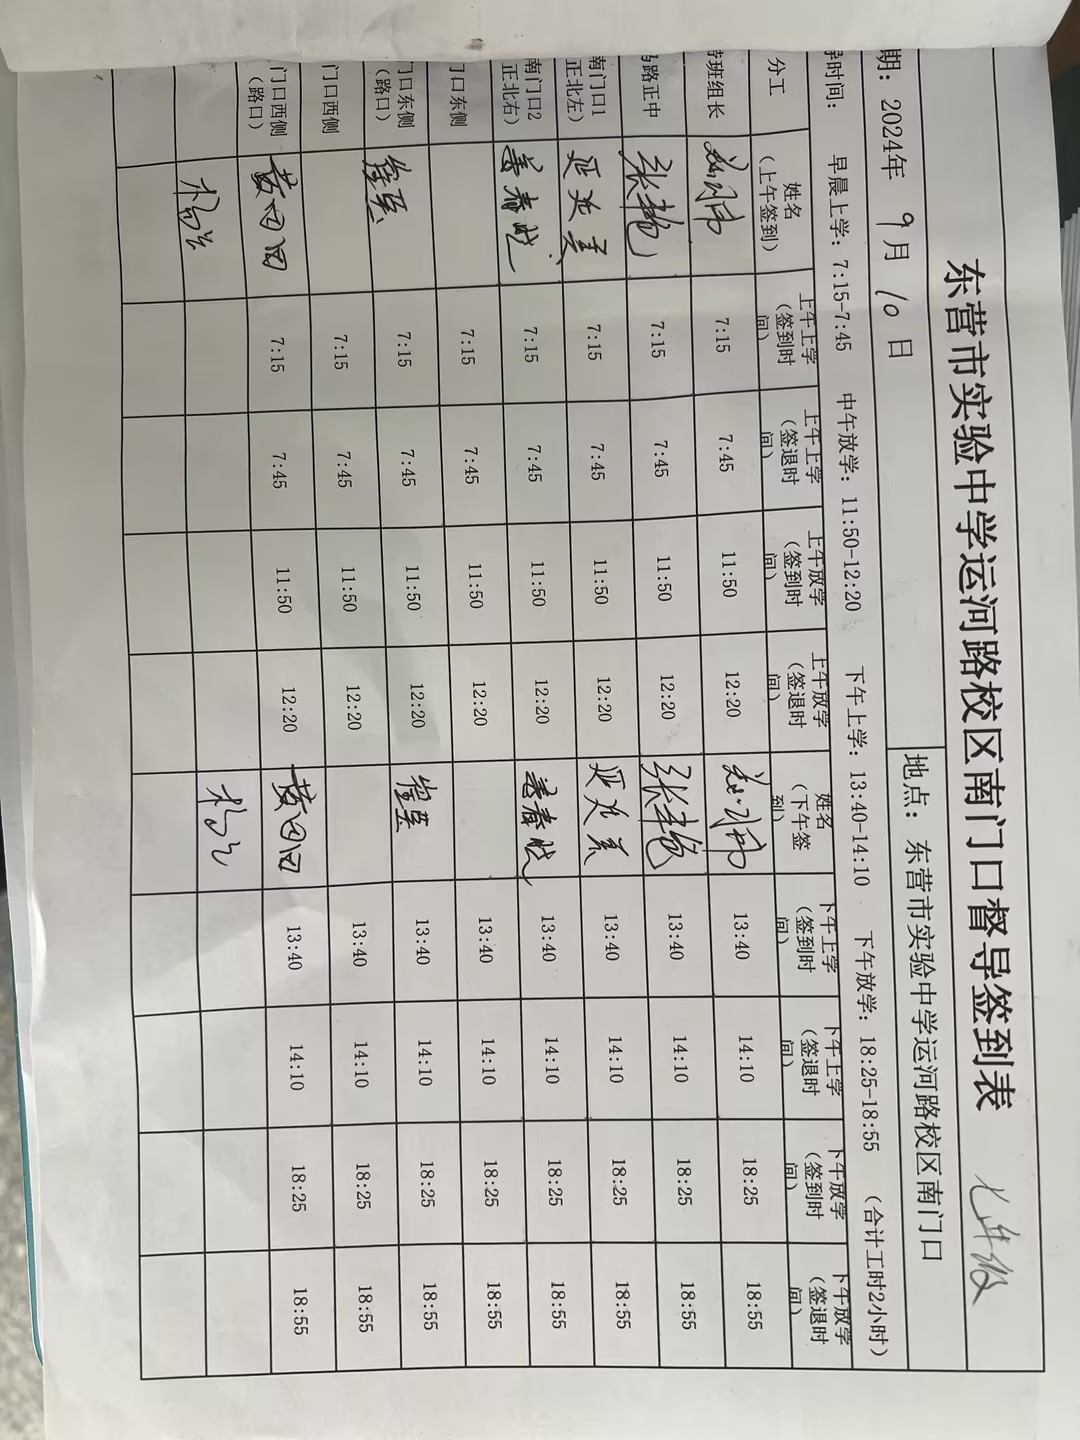 东营市实验中学运河路校区南门口督导签到表 七年级
期: 2024年 9月 10日 地点: 东营市实验中学运河路校区南门口
时间: 早晨上学: 7:15-7:45 中午放学: 11:50-12:20 下午上学: 13:40-14:10 下午放学: 18:25-18:55 (合计工时2小时)
分工 姓名(上午签到) 上午上学(签到时间) 上午上学(签退时间) 上午放学(签到时间) 上午放学(签退时间) 姓名(下午签到) 下午上学(签到时间) 下午上学(签退时间) 下午放学(签到时间) 下午放学(签退时间)
班组长 7:15 7:45 11:50 12:20 13:40 14:10 18:25 18:55
马路正中 张艳 7:15 7:45 11:50 12:20 张艳 13:40 14:10 18:25 18:55
南门口1(正北左) 延光美 7:15 7:45 11:50 12:20 延光美 13:40 14:10 18:25 18:55
南门口2(正北右) 姜春晓 7:15 7:45 11:50 12:20 姜春晓 13:40 14:10 18:25 18:55
门口东侧 7:15 7:45 11:50 12:20 13:40 14:10 18:25 18:55
门口东侧(路口) 7:15 7:45 11:50 12:20 13:40 14:10 18:25 18:55
门口西侧 7:15 7:45 11:50 12:20 13:40 14:10 18:25 18:55
门口西侧(路口) 黄田田 7:15 7:45 11:50 12:20 黄田田 13:40 14:10 18:25 18:55